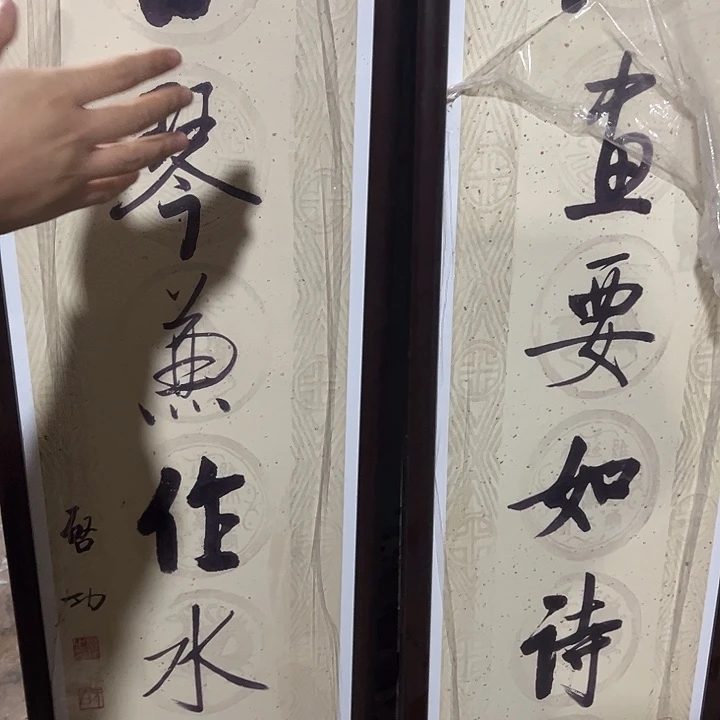 画要如诗
琴兼作水
啓功